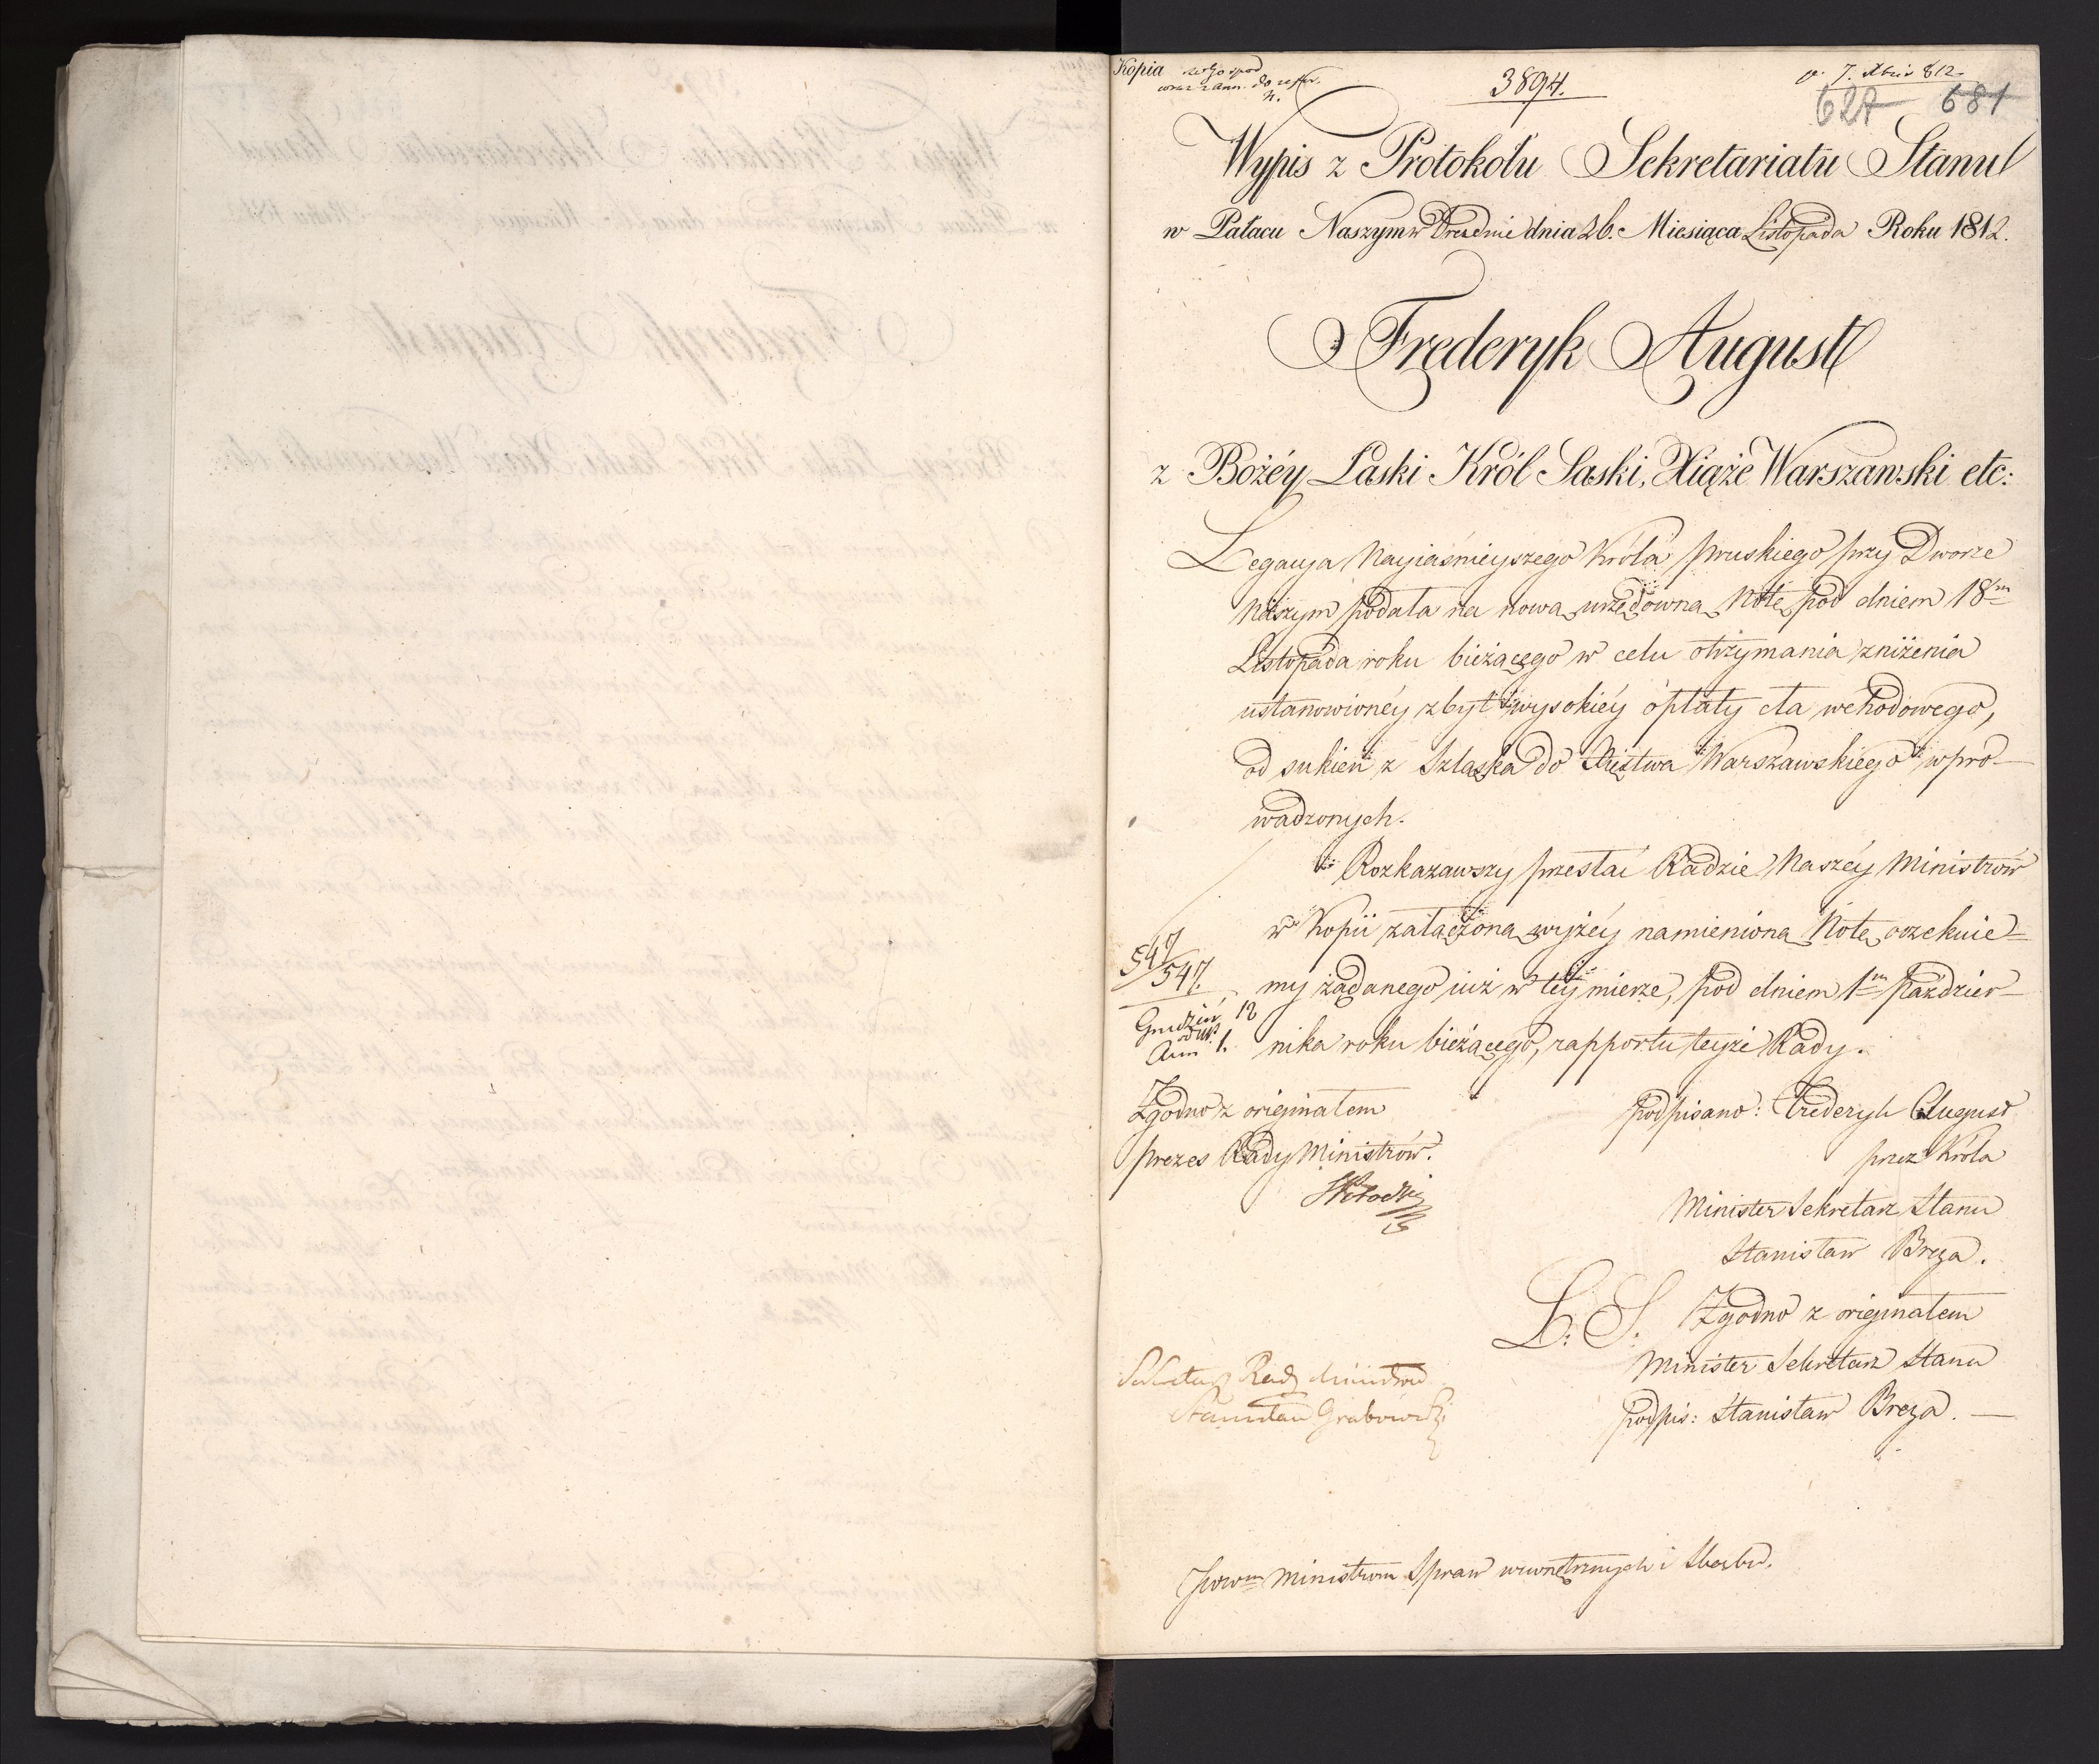 Kopia
3894.
7. Xbris 812.
627 681
Wypis z Protokołu Sekretariatu Stanu
w Pałacu Naszym w Dreźnie dnia 26. Miesiąca Listopada Roku 1812.
Frederyk August
z Bożéy Łaski Król Saski, Xiąże Warszawski etc:
Legacya Nayiaśnieyszego Króla pruskiego przy Dworze
Naszym podała na nowo urzędowną Notę pod dniem 18m
Listopada roku bieżącego w celu otrzymania zniżenia
ustanowionéy zbyt wysokiéy opłaty cła wchodowego,
od sukien z Szląska do Xięstwa Warszawskiego wpro-
wadzonych.
Rozkazawszy przesłać Radzie Naszéy Ministrów
w Kopii załączoną wyżéy namienioną Notę, oczekuie-
my żądanego iuż w téy mierze, pod dniem 1m Paździer-
nika roku bieżącego, rapportu teyże Rady.
547/547.
Grudzień 12
Ann 1.
Zgodno z originałem
prezes Rady Ministrów.
podpisano: Frederyk August
przez Króla
Minister Sekretarz Stanu
Stanisław Breza.
L. S. Zgodno z originałem
Minister Sekretarz Stanu
podpis: Stanisław Breza. —
Sekretarz Rady Ministrów
Stanisław Grabowski
Jwwm Ministrom Spraw wewnętrznych i Skarbu.